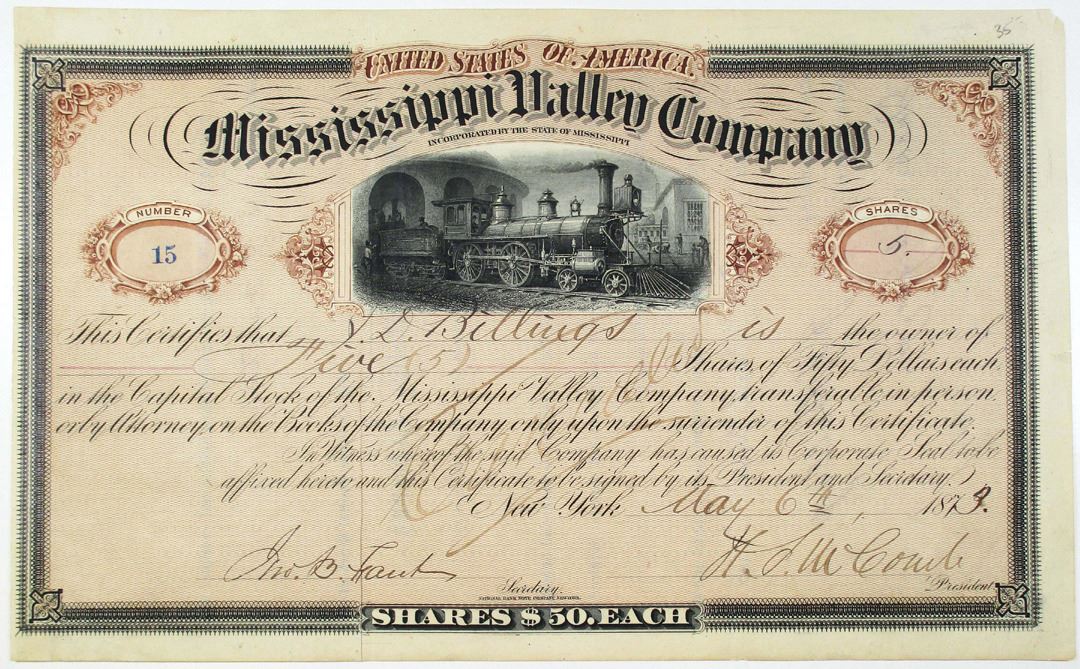 35
UNITED STATES OF AMERICA.
Mississippi Valley Company
INCORPORATED BY THE STATE OF MISSISSIPPI
NUMBER
15
SHARES
5.
This Certifies that J. D. Billings is the owner of
Five (5) Shares of Fifty Dollars each
in the Capital Stock of the Mississippi Valley Company, transferable in person
or by Attorney, on the Books of the Company only upon the surrender of this Certificate.
In Witness whereof the said Company has caused its Corporate Seal to be
affixed hereto and this Certificate to be signed by its President and Secretary.
New York May 6th, 1873.
Jno. B. Fant
H. S. McComb
Secretary.
President
NATIONAL BANK NOTE COMPANY, NEW YORK.
SHARES $50. EACH